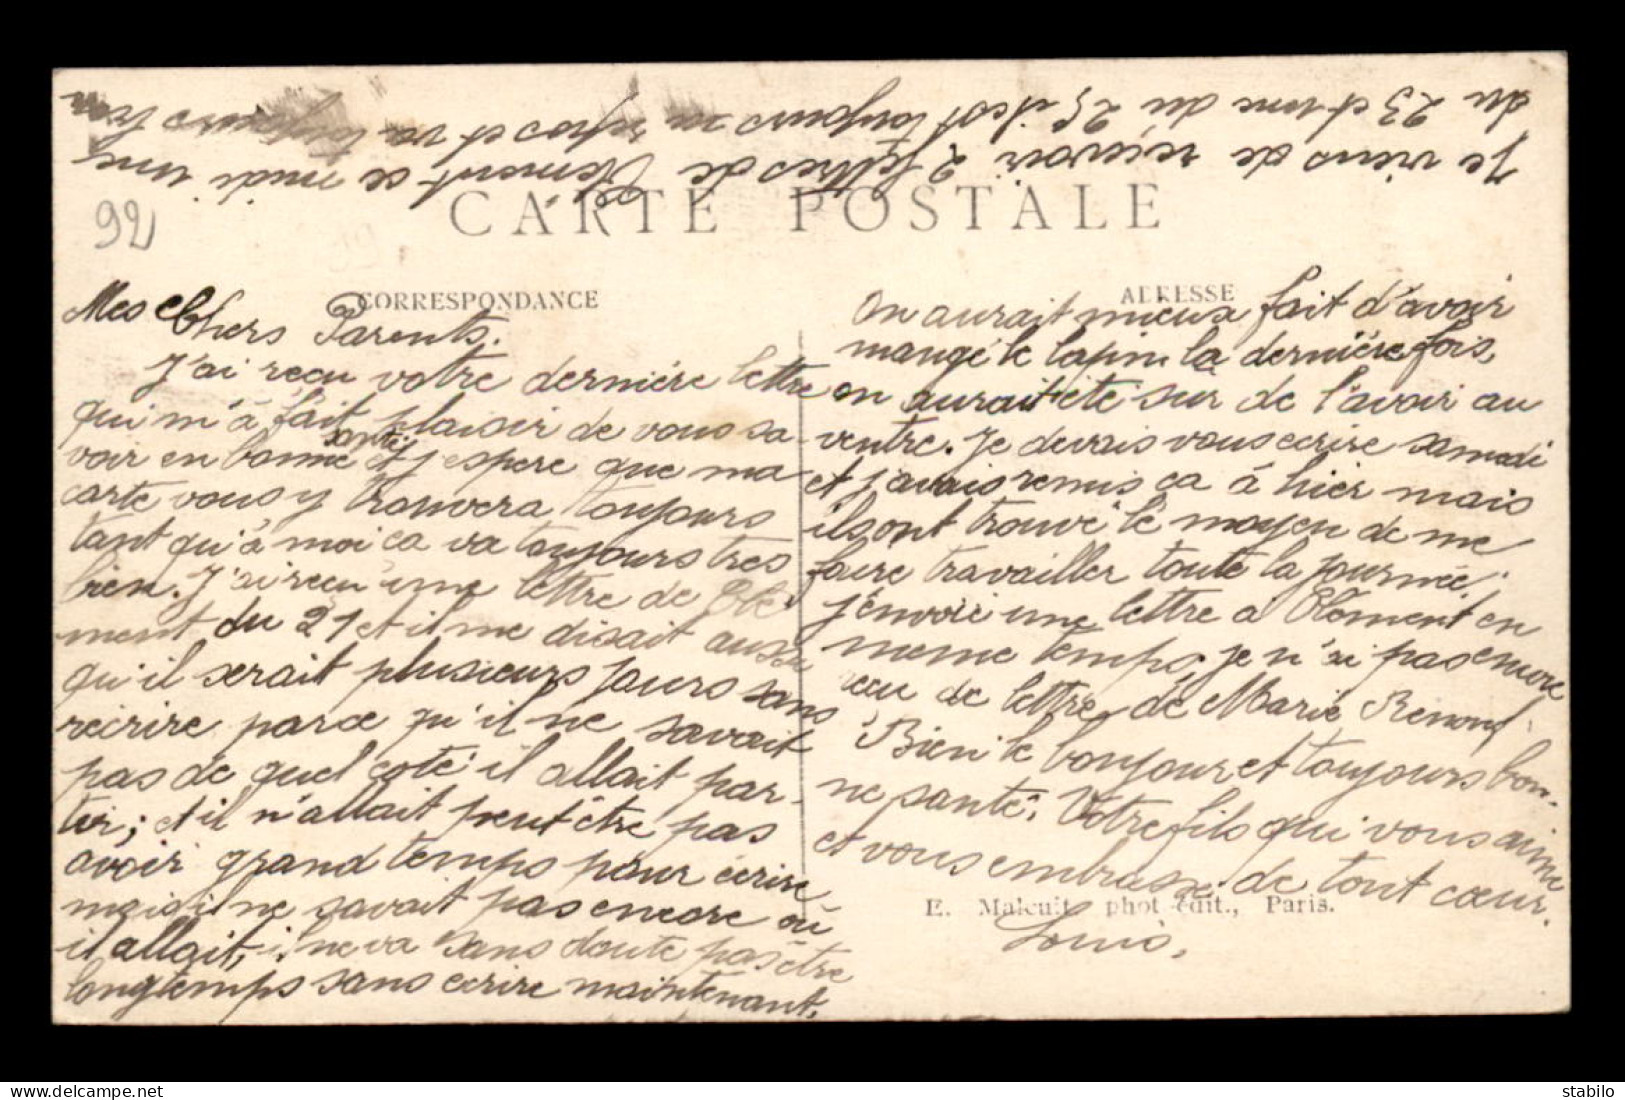 Je viens de reçevoir 2 lettres de Clement ce midi une
du 23 et une du 25 il est toujours au repos et va toujours très
CARTE POSTALE
92
CORRESPONDANCE
Mes Chers Parents.
J'ai reçu votre dernière lettre
qui m'à fait plaisir de vous sa-
voir en bonne santé et j'espere que ma
carte vous y trouvera toujours
tant qu'à moi ca va toujours tres
bien. J'ai reçu une lettre de Clé-
ment du 21 et il me disait aussi
qu'il serait plusieurs jours sans
récrire parce qu'il ne savait
pas de quel coté il allait par-
tir; et il n'allait peut être pas
avoir grand temps pour écrire
mais il ne savait pas encore où
il allait, il ne va sans doute pas être
longtemps sans écrire maintenant.
ADRESSE
On aurait mieux fait d'avoir
mangé le lapin la dernière fois,
on aurait été sur de l'avoir au
ventre. Je devais vous ecrire samedi
et j'avais remis ça à hier mais
ils ont trouvé le moyen de me
faire travailler toute la journée.
j'envoie une lettre a Clément en
meme temps, je n'ai pas encore
recu de lettre de Marie Renouf.
Bien le bonjour et toujours bon-
ne santé. Votre fils qui vous aime
et vous embrasse de tout cœur.
E. Malcuit phot-édit., Paris.
Louis.
delcampe.net
stabilo